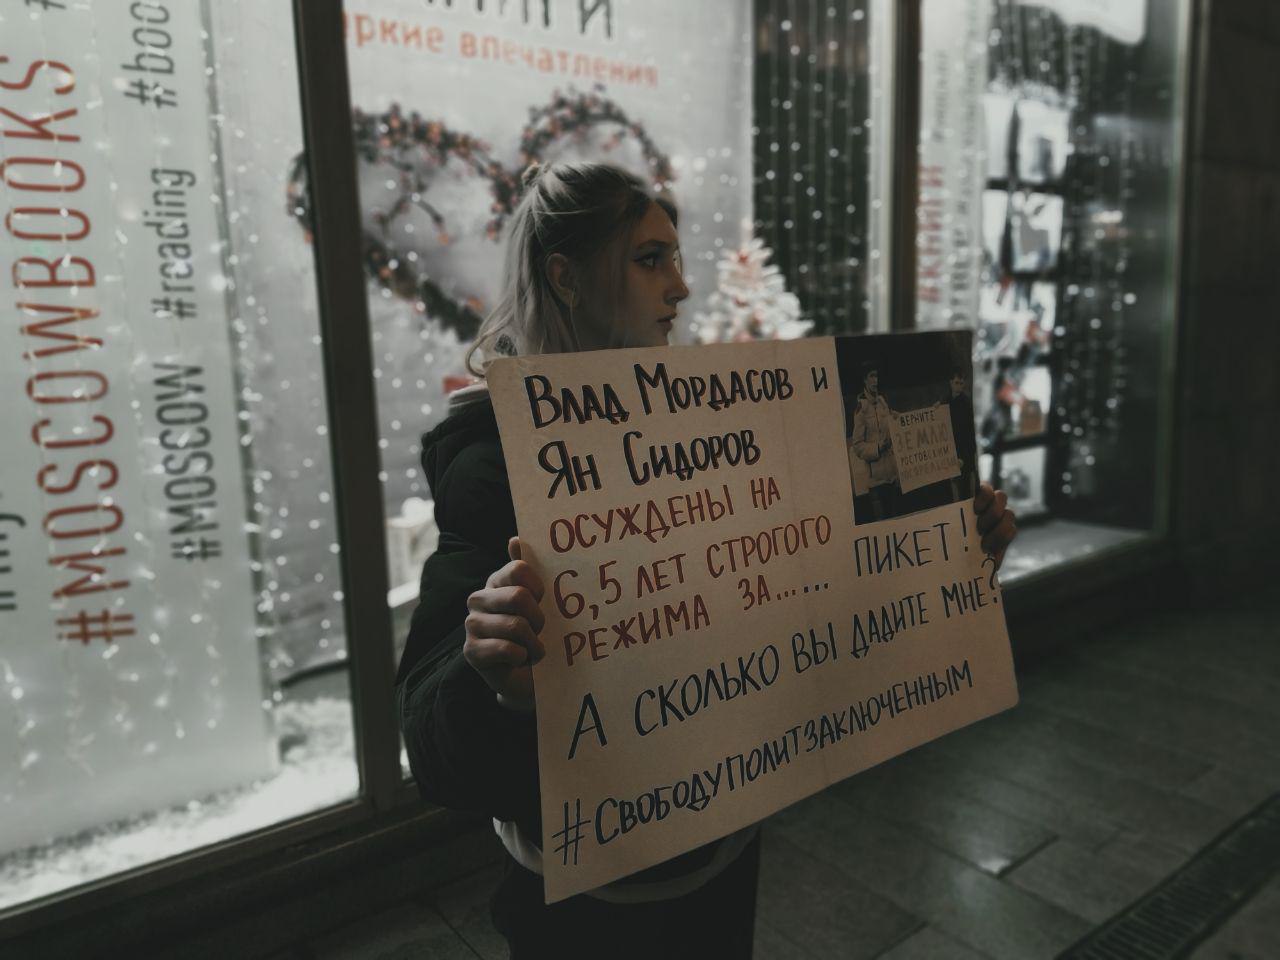 #MOSCOWBOOKS
#MOSCOW #reading #boo
яркие впечатления
#КНИГИ
Влад Мордасов и
Ян Сидоров
осуждены на
6,5 лет строгого
режима за...... пикет!
А сколько вы дадите мне?
#Свободуполитзаключенным
ВЕРНИТЕ
ЗЕМЛЮ
РОСТОВСКИМ